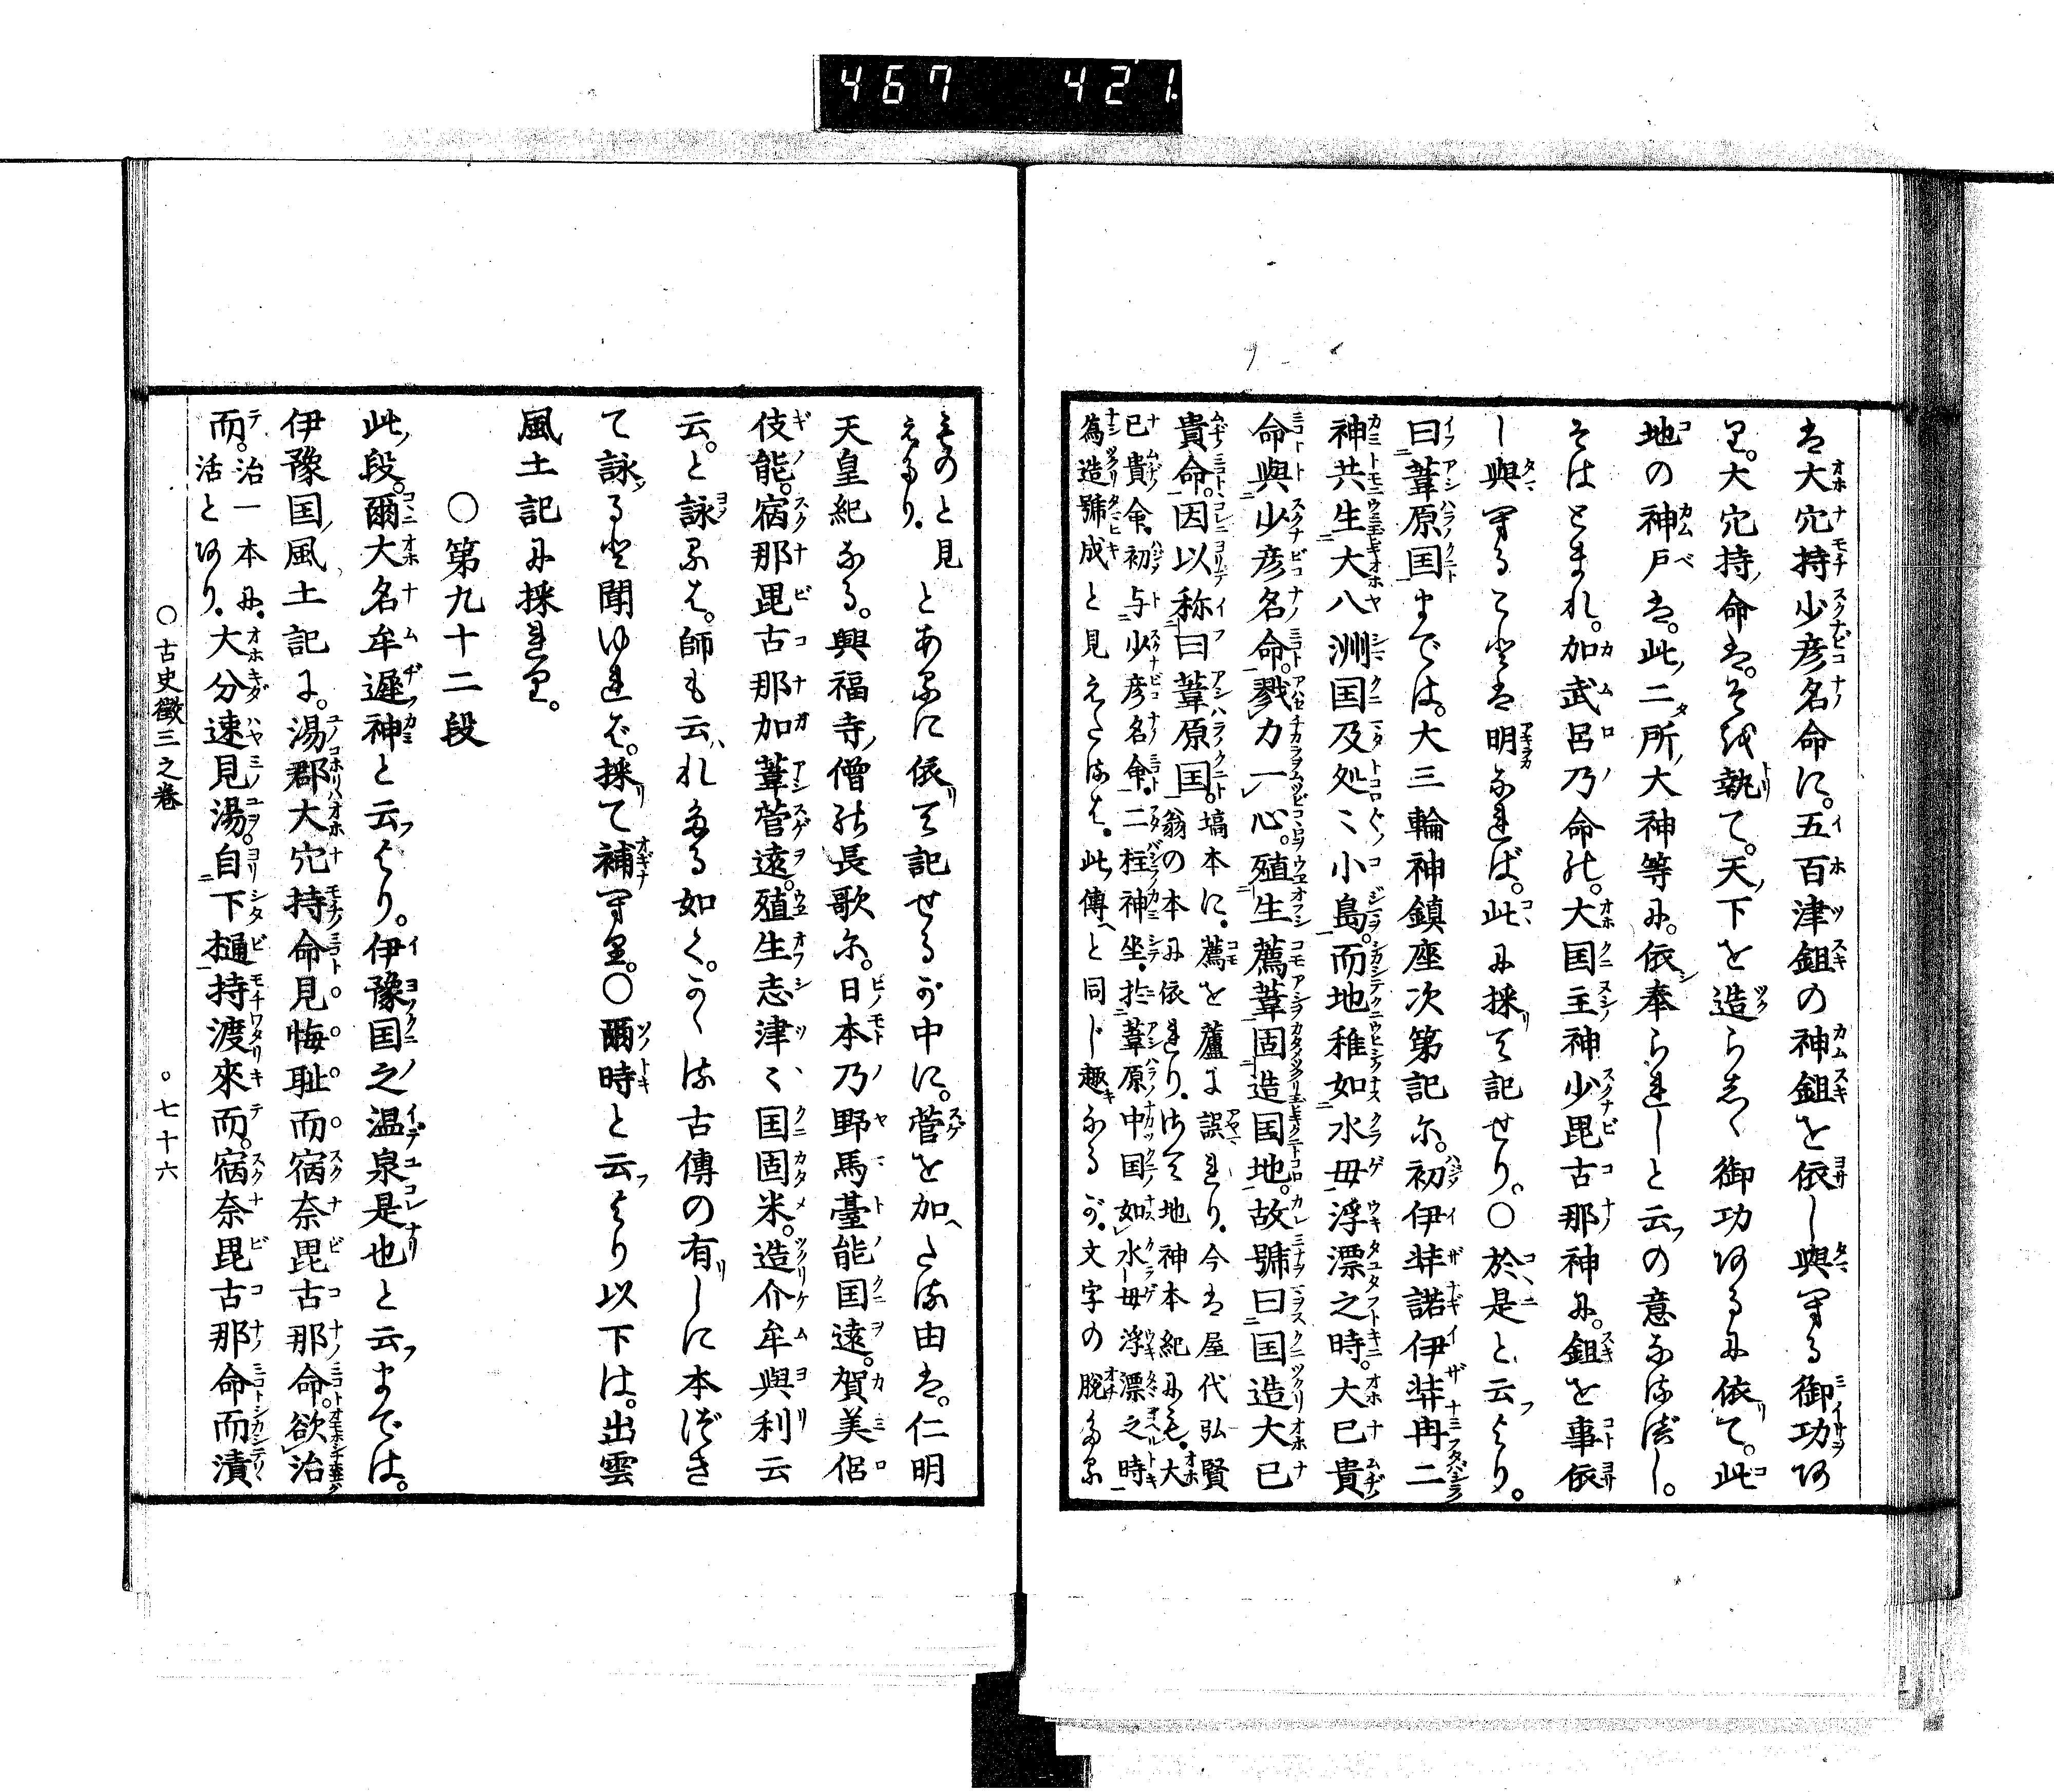 467 421
は大穴持少彦名命に。五百津鉏の神鉏を依し與へる御功あ
り。大穴持命は。そを執て。天下を造らしゝ御功あるに依て。此
地の神戸は。此二所大神等に。依奉られしと云の意なるべし。
そはとまれ。加武呂乃命の。大国主神少毘古那神に。鉏を事依
し與へることは明なれば。此に採て記せり。〇於是と云より。
曰葦原国までは。大三輪神鎮座次第記に。初伊弉諾伊弉冉二
神共生大八洲国及処々小島。而地稚如水母浮漂之時。大已貴
命與少彦名命。戮力一心。殖生薦葦固造国地。故號曰国造大已
貴命。因以称曰葦原国。塙本に。薦を蘆に誤れり。今は屋代弘賢
翁の本に依れり。さて地神本紀にも。大
已貴命。初与少彦名命。二柱神坐。於葦原中国。如水母浮漂之時
為造號成と見えたるは。此傳と同じ趣なるが。文字の脱たる
ものと見
えたり。とあるに依て記せるが中に。菅を加へたる由は。仁明
天皇紀なる。興福寺僧の長歌に。日本乃野馬臺能国遠。賀美侶
伎能。宿那毘古那加葦菅遠。殖生志津々国固米。造介牟與利云
云。と詠るは。師も云れたる如く。かくる古傳の有しに本づき
て詠ると聞ゆれば。採て補へり。〇爾時と云より以下は。出雲
風土記に採れり。
〇第九十二段
此段。爾大名牟遲神と云より。伊豫国之温泉是也と云までは。
伊豫国風土記に。湯郡大穴持命見悔耻而宿奈毘古那命。欲治
而。治一本に。
活とあり。大分速見湯。自下樋持渡來而。宿奈毘古那命而漬
〇古史徴三之巻 〇七十六